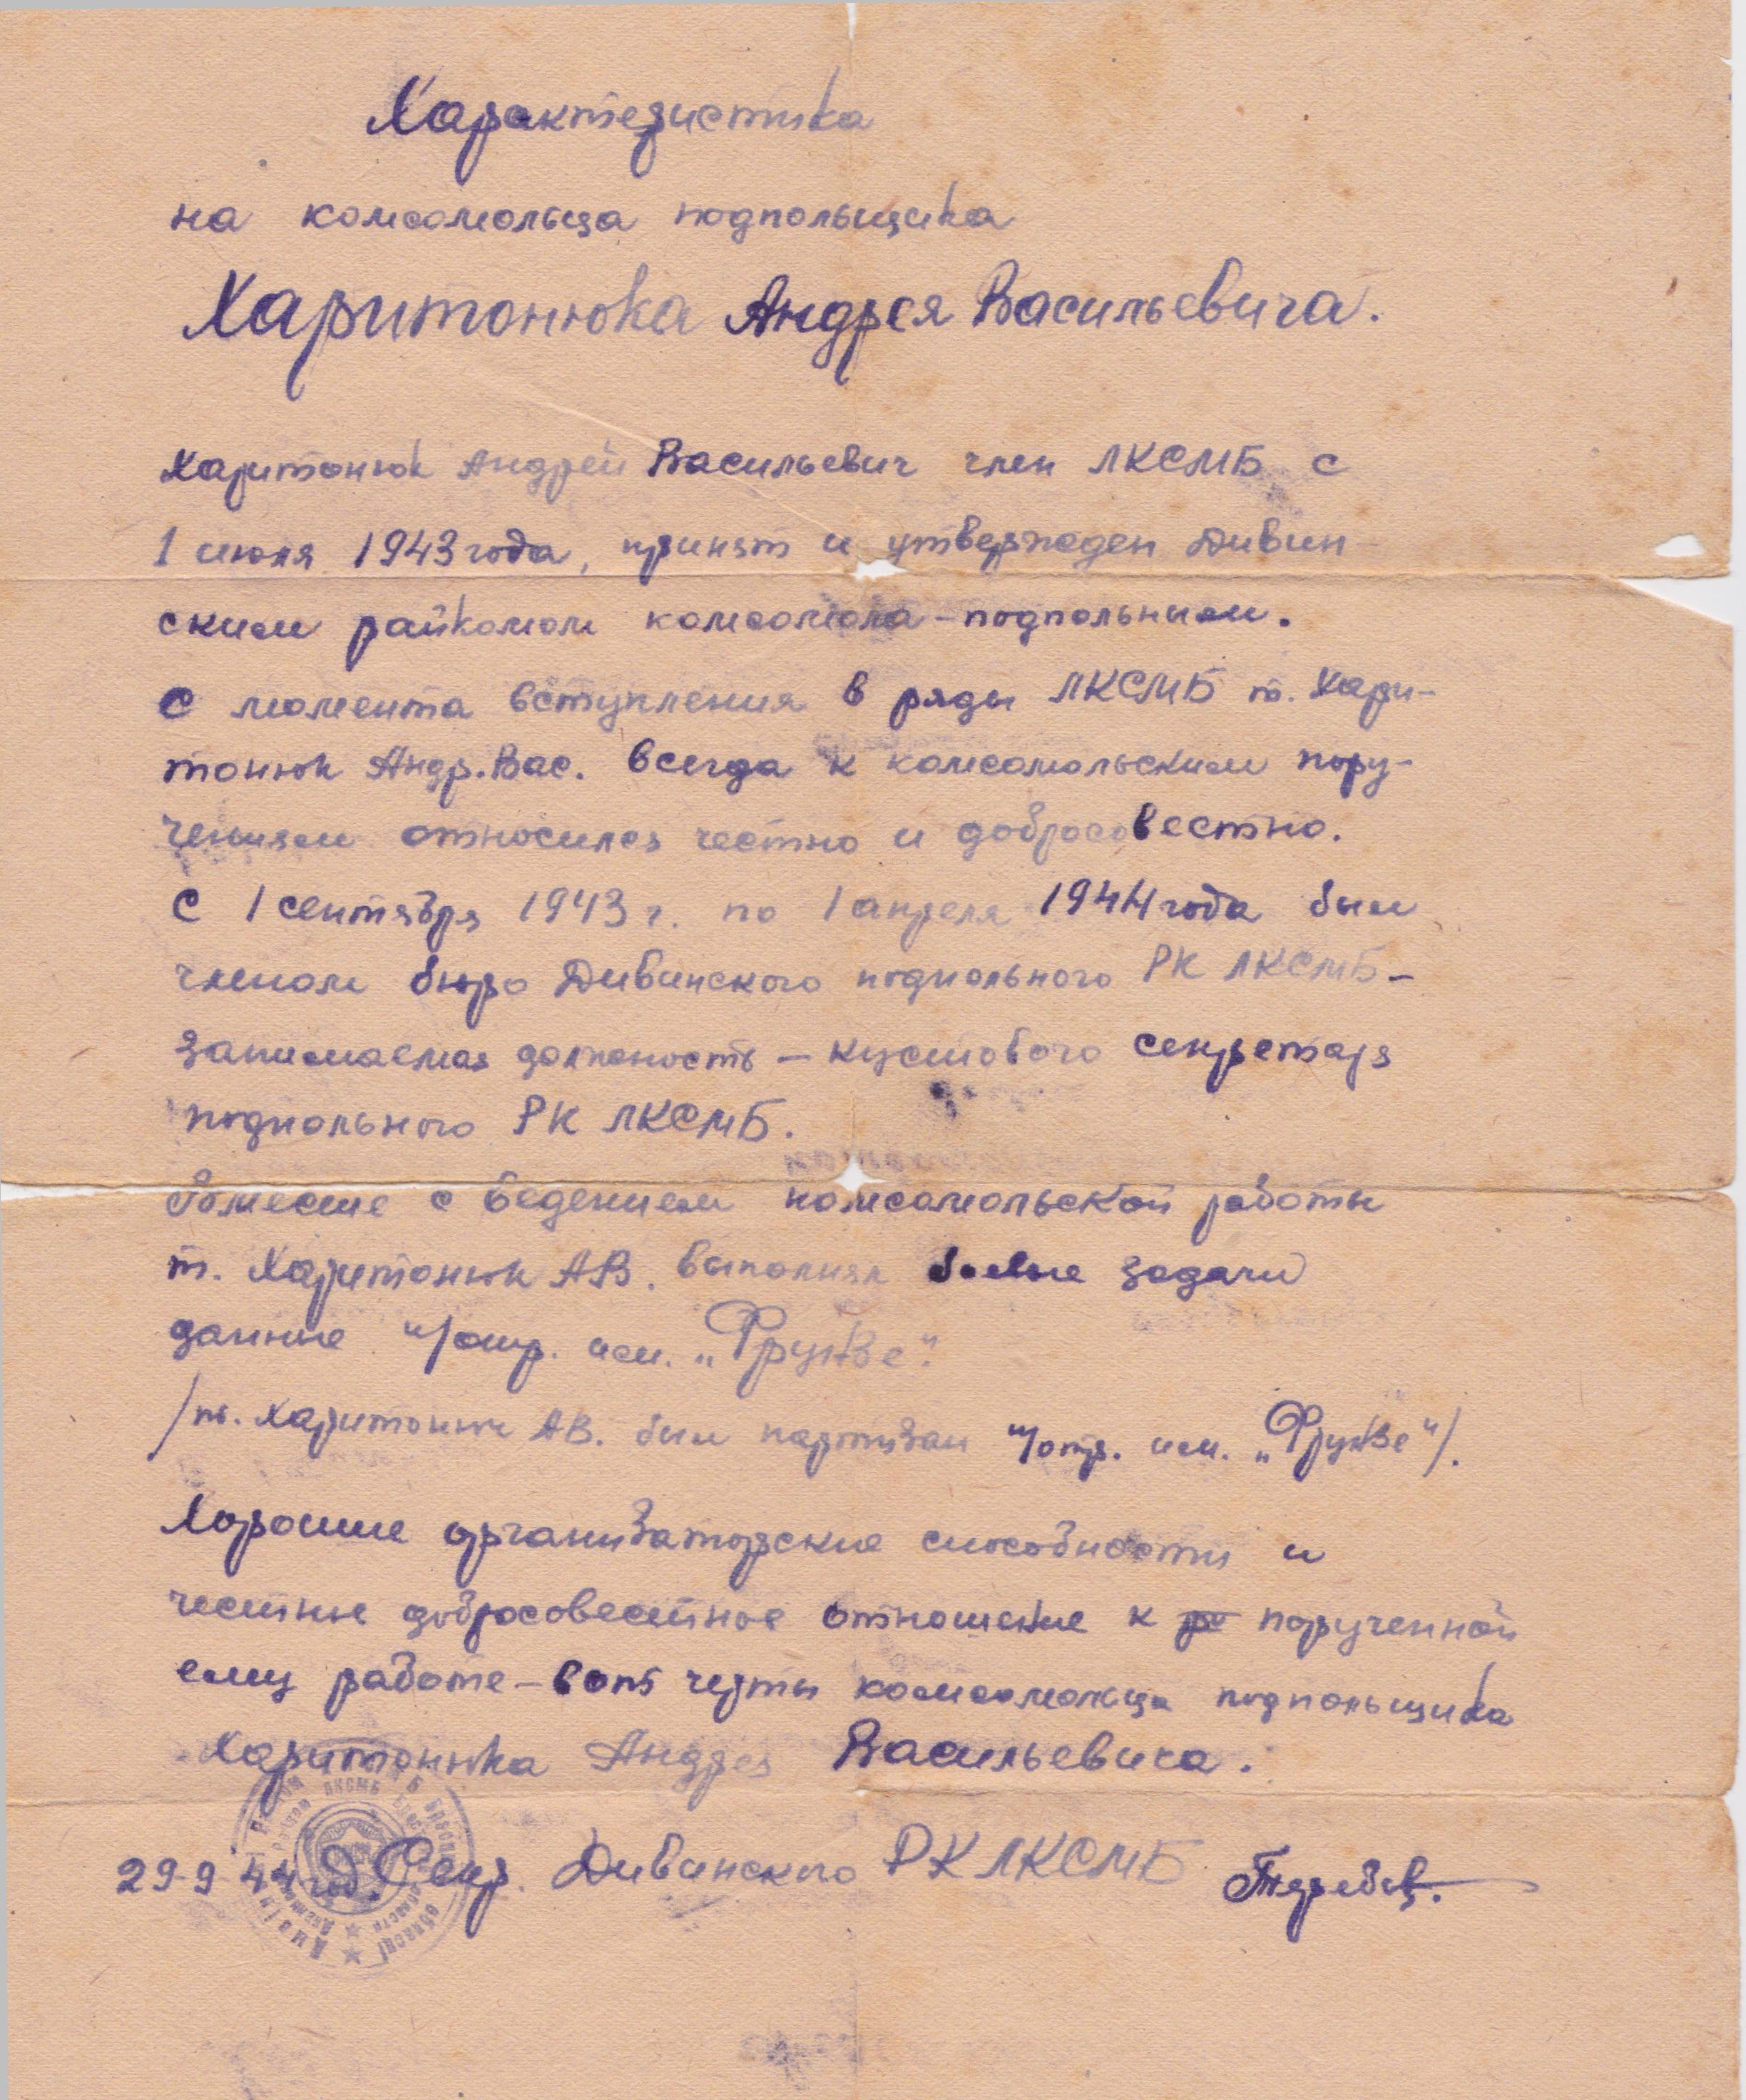 Характеристика
на комсомольца подпольщика
Харитонюка Андрея Васильевича.
Харитонюк Андрей Васильевич член ЛКСМБ с
1 июня 1943 года, принят и утвержден Дивин-
ским райкомом комсомола-подпольным.
С момента вступления в ряды ЛКСМБ т. Хари-
тонюк Андр. Вас. всегда к комсомольским пору-
чениям относился честно и добросовестно.
С 1 сентября 1943 г. по 1 апреля 1944 года был
членом бюро Дивинского подпольного РК ЛКСМБ-
занимаемая должность - кустового секретаря
подпольного РК ЛКСМБ.
Вместе с ведением комсомольской работы
т. Харитонюк АВ. выполнял боевые задачи
данные п/отр. им. „Фрунзе".
/т. Харитонюк АВ. был партизан п/отр. им. „Фрунзе"/.
Хорошие организаторские способности и
честные добросовестное отношение к порученной
ему работе - вот черты комсомольца подпольщика
Харитонюка Андрея Васильевича.
29-9 44 год. Секр. Дивинского РК ЛКСМБ